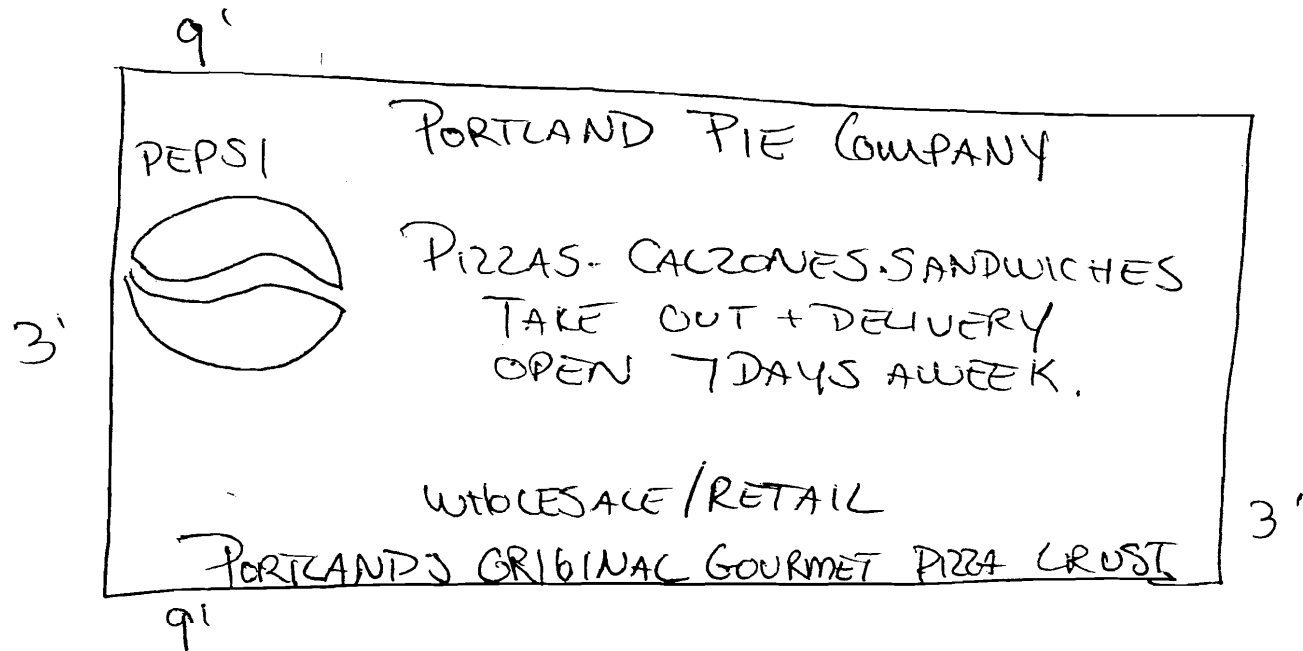 9'
PORTLAND PIE COMPANY
PEPSI
PIZZAS - CALZONES . SANDWICHES
TAKE OUT + DELIVERY
3'
OPEN 7 DAYS A WEEK.
WHOLESALE / RETAIL
3'
PORTLANDS ORIGINAL GOURMET PIZZA CRUST
9'